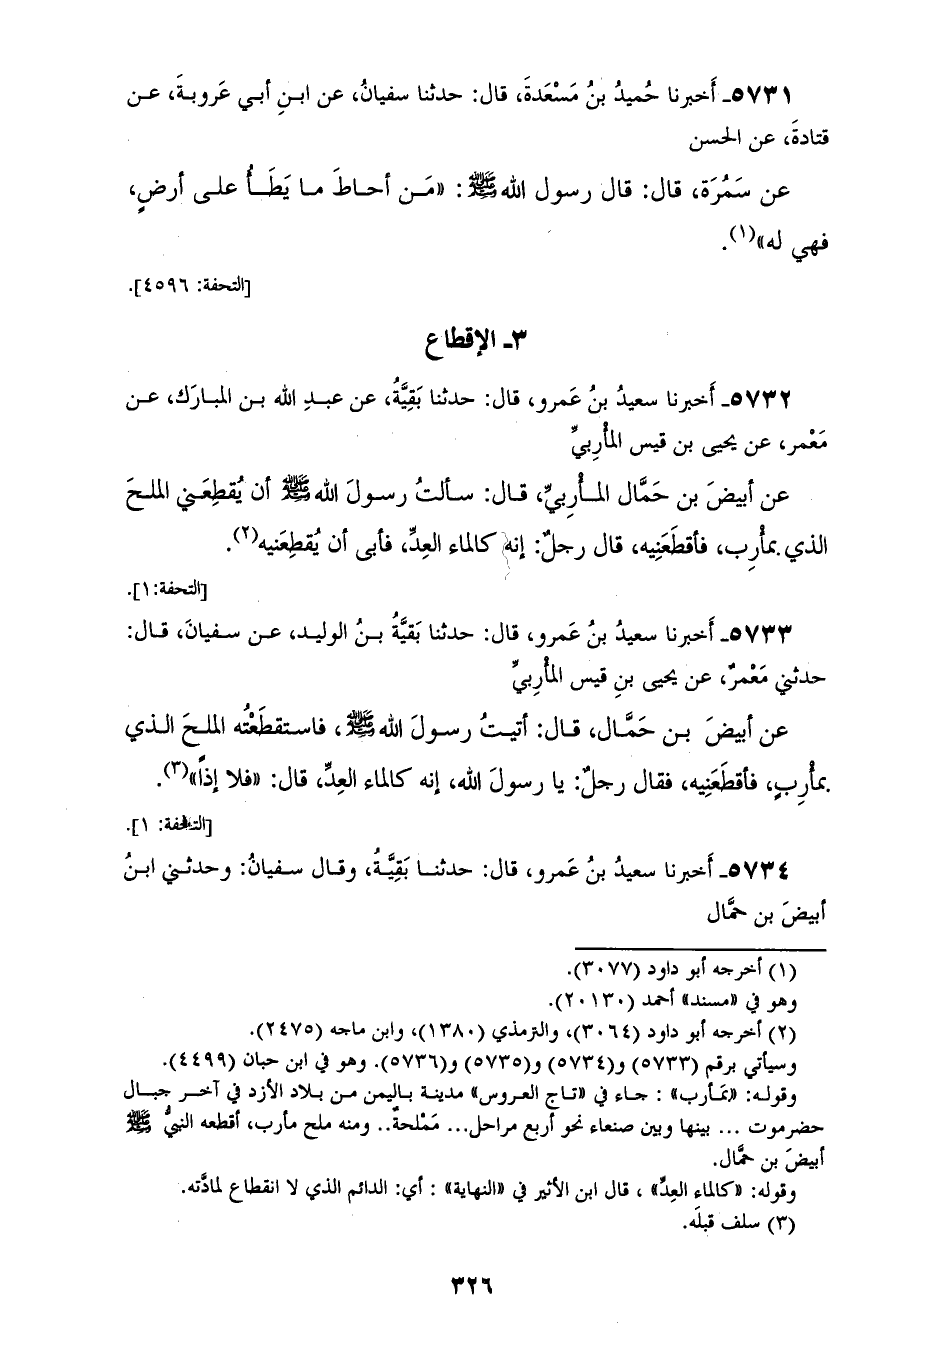 ٥٧٣١ـ أَخبرنا حُميدُ بنُ مَسْعَدةَ، قال: حدثنا سفيانُ، عن ابنِ أبي عَروبةَ، عـن
قتادةَ، عن الحسن
عن سَمُرَة، قال: قال رسول الله ﷺ : «مَـن أحـاطَ مـا يَطَـأُ علـى أرضٍ،
فهي له»(١).
[التحفة: ٤٥٩٦].
٣ـ الإقطاع
٥٧٣٢ـ أَخبرنا سعيدُ بنُ عَمرو، قال: حدثنا بَقِيَّةُ، عن عبـدِ الله بـن المبارَك، عـن
مَعْمر، عن يحيى بن قيس المأْرِبيِّ
عن أبيضَ بن حَمَّال المـأْرِبيِّ، قـال: سـألتُ رسـولَ الله ﷺ أن يُقطِعَـني الملحَ
الذي بمأْرِب، فأقطَعَنِيه، قال رجلٌ: إنه كالماء العِدِّ، فأبى أن يُقطِعَنيه(٢).
[التحفة: ١].
٥٧٣٣ـ أَخبرنا سعيدُ بنُ عَمرو، قال: حدثنا بَقيَّةُ بـنُ الوليـد، عـن سـفيانَ، قـال:
حدثني مَعْمرٌ، عن يحيى بنِ قيس المأْرِبيِّ
عن أبيضَ بـن حَمَّـال، قـال: أتيـتُ رسـولَ الله ﷺ، فاسـتقطَعْتُه الملحَ الـذي
بمأْرِبٍ، فأقطَعَنِيه، فقال رجلٌ: يا رسولَ الله، إنه كالماء العِدِّ، قال: «فلا إذاً»(٣).
[التحفة: ١].
٥٧٣٤ـ أَخبرنا سعيدُ بنُ عَمرو، قال: حدثنـا بَقِيَّـةُ، وقـال سـفيانُ: وحدثـني ابـنُ
أبيضَ بن حمَّال
(١) أخرجه أبو داود (٣٠٧٧).
وهو في «مسند» أحمد (٢٠١٣٠).
(٢) أخرجه أبو داود (٣٠٦٤)، والترمذي (١٣٨٠)، وابن ماجه (٢٤٧٥).
وسيأتي برقم (٥٧٣٣) و(٥٧٣٤) و(٥٧٣٥) و(٥٧٣٦). وهو في ابن حبان (٤٤٩٩).
وقولـه: «بمَأرب» : جـاء في «تـاج العـروس» مدينـة بـاليمن مـن بـلاد الأزد في آخـر جبـال
حضرموت ... بينها وبين صنعاء نحو أربع مراحل... مَمْلحةٌ.. ومنه ملح مأرب، أقطعه النبيُّ ﷺ
أبيضَ بن حمَّال.
وقوله: «كالماء العِدِّ» ، قال ابن الأثير في «النهاية» : أي: الدائم الذي لا انقطاع لمادَّته.
(٣) سلف قبلَه.
٣٢٦